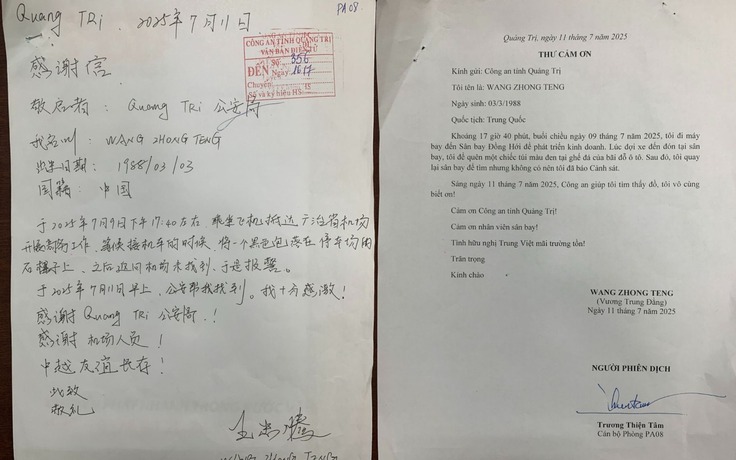 Quang TRi , 2025年7月11日
PA08
感谢信
CÔNG AN TỈNH QUẢNG TRỊ
VĂN BẢN ĐIỆN TỬ
Số:
ĐẾN Ngày:
Chuyển:
Số và ký hiệu HS:
敬启者 : Quang TRi 公安局
我名叫 : WANG ZHONG TENG
出生日期 : 1988/03/03
国籍 : 中国
于2025年7月9日下午17:40左右,乘坐飞机抵达广治省机场
开展商务工作,等候接机车的时候,将一个黑色包忘在停车场的
石椅子上,之后返回机场未找到,于是报警。
于2025年7月11日早上,公安帮我找到。我十分感激!
感谢 Quang TRi 公安局!
感谢 机场人员!
中越友谊长存!
此致
敬礼
WANG ZHONG TENG
Quảng Trị, ngày 11 tháng 7 năm 2025
THƯ CẢM ƠN
Kính gửi: Công an tỉnh Quảng Trị
Tôi tên là: WANG ZHONG TENG
Ngày sinh: 03/3/1988
Quốc tịch: Trung Quốc
Khoảng 17 giờ 40 phút, buổi chiều ngày 09 tháng 7 năm 2025, tôi đi máy
bay đến Sân bay Đồng Hới để phát triển kinh doanh. Lúc đợi xe đến đón tại sân
bay, tôi để quên một chiếc túi màu đen tại ghế đá của bãi đỗ ô tô. Sau đó, tôi quay
lại sân bay để tìm nhưng không có nên tôi đã báo Cảnh sát.
Sáng ngày 11 tháng 7 năm 2025, Công an giúp tôi tìm thấy đồ, tôi vô cùng
biết ơn!
Cảm ơn Công an tỉnh Quảng Trị!
Cảm ơn nhân viên sân bay!
Tình hữu nghị Trung Việt mãi trường tồn!
Trân trọng
Kính chào
WANG ZHONG TENG
(Vương Trung Đằng)
Ngày 11 tháng 7 năm 2025
NGƯỜI PHIÊN DỊCH
Trương Thiện Tâm
Cán bộ Phòng PA08